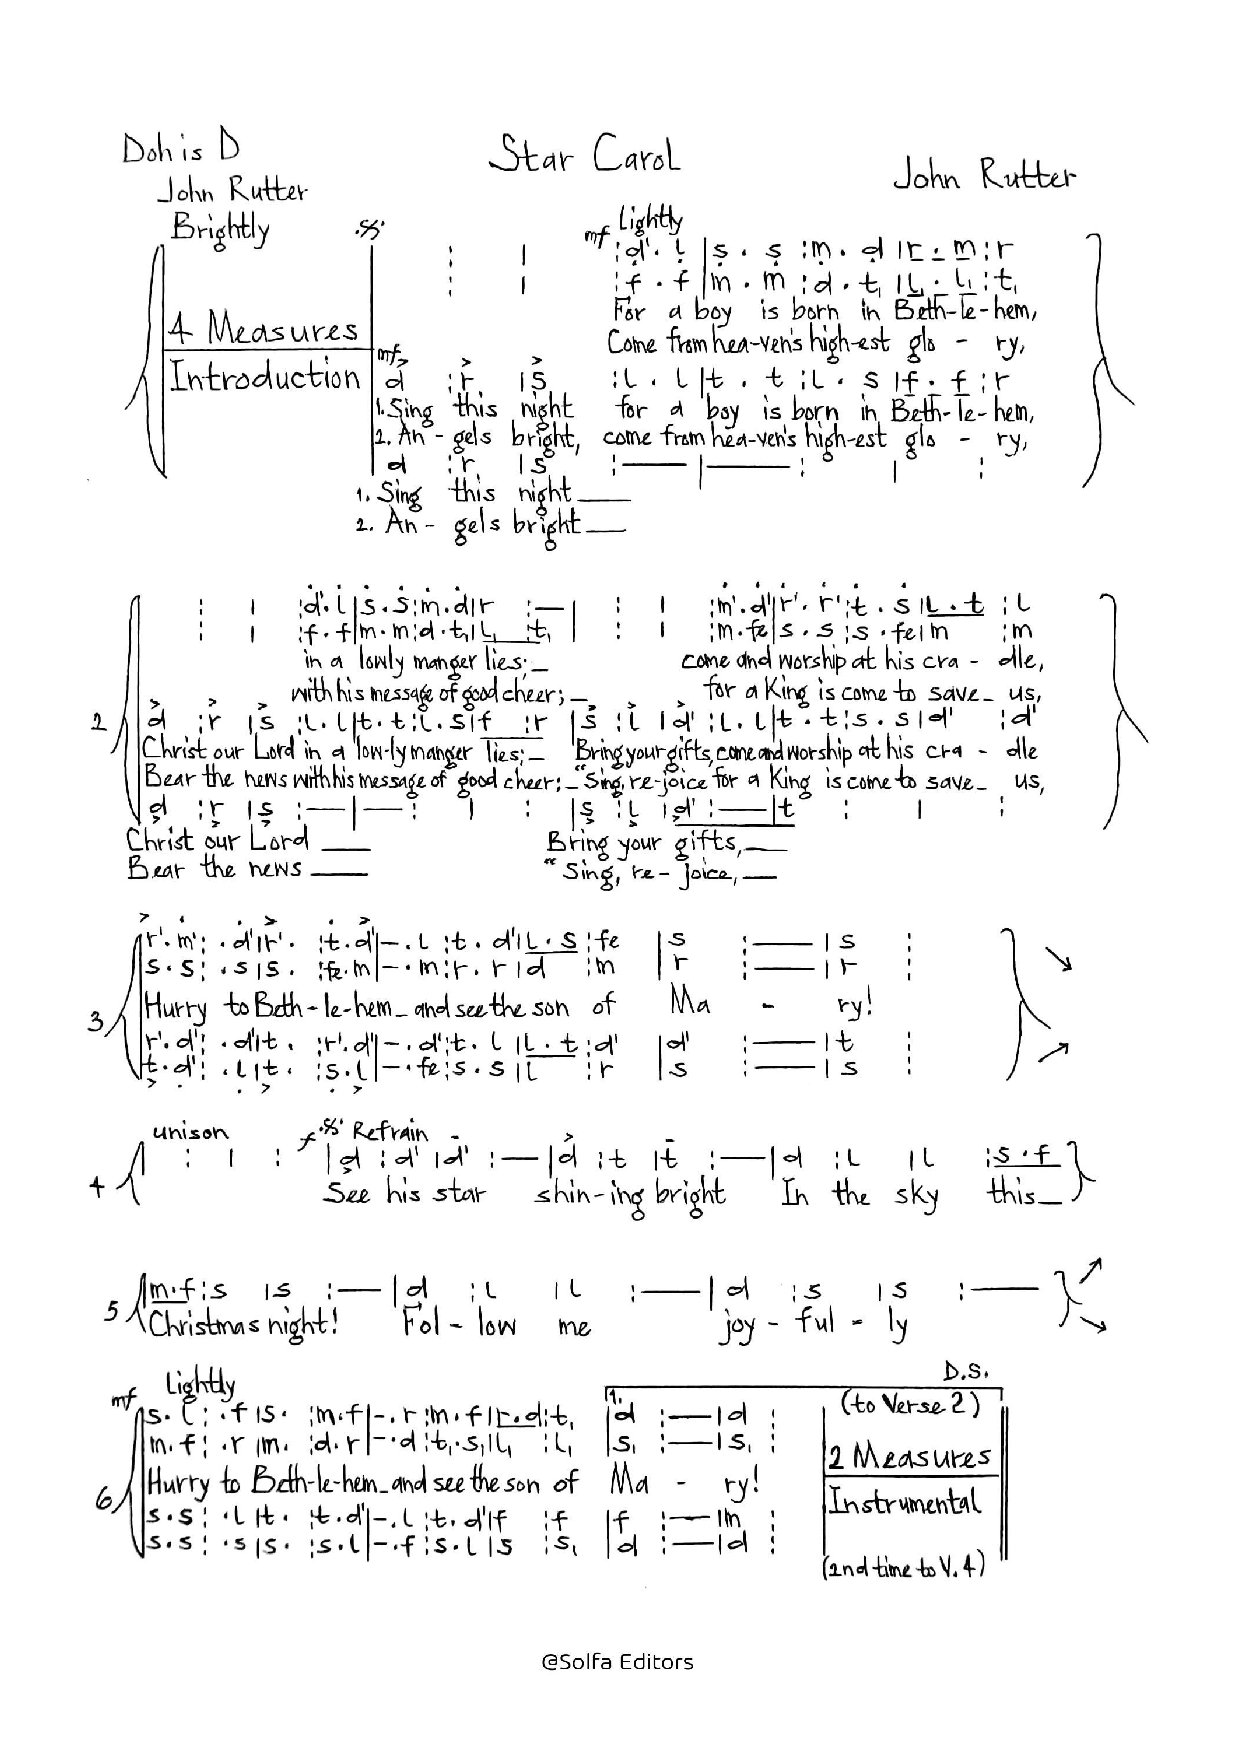 Doh is D
Star Carol
John Rutter
John Rutter
Brightly
Lightly
mf :d'. l |s . s :m . d |r . m :r
:f . f |m . m :d . t, |l, . l, :t,
For a boy is born in Beth-le-hem,
Come from hea-ven's high-est glo - ry,
4 Measures
Introduction
mf
d :r |s :l . l |t . t :l . s |f . f :r
1. Sing this night for a boy is born in Beth-le-hem,
2. An - gels bright, come from hea-ven's high-est glo - ry,
d :r |s :— |— : | :
1. Sing this night ___
2. An - gels bright ___
: | :d'. l |s . s :m . d |r :— | : | :m'. d' |r'. r' :t . s |l . t :l
: | :f . f |m . m :d . t, |l, t, | : | :m . fe |s . s :s . fe |m :m
in a lowly manger lies; _ come and worship at his cra - dle,
with his message of good cheer; _ for a King is come to save _ us,
2
d :r |s :l . l |t . t :l . s |f :r |s :l |d' :l . l |t . t :s . s |d' :d'
Christ our Lord in a low-ly manger lies; _ Bring your gifts, come and worship at his cra - dle
Bear the news with his message of good cheer; _ "Sing, re-joice for a King is come to save _ us,
d :r |s :— |— : | : |s :l |d' :— |t : | :
Christ our Lord ___ Bring your gifts, ___
Bear the news ___ "Sing, re - joice, ___
r'. m' : . d' |r'. :t . d' |— . l :t . d' |l . s :fe |s :— |s :
s . s : . s |s . :fe . m |— . m :r . r |d :m |r :— |r :
3
Hurry to Beth - le - hem _ and see the son of Ma - ry!
r'. d' : . d' |t . :r'. d' |— . d' :t . l |l . t :d' |d' :— |t :
t . d' : . l |t . :s . l |— . fe :s . s |l :r |s :— |s :
unison
f Refrain
4
: | : |d :d' |d' :— |d :t |t :— |d :l |l :s . f
See his star shin-ing bright In the sky this _
5
m . f :s |s :— |d :l |l :— |d :s |s :—
Christmas night! Fol - low me joy - ful - ly
Lightly
D.S.
mf
s . l : . f |s . :m . f |— . r :m . f |r . d :t, |1. d :— |d :
(to Verse 2)
m . f : . r |m . :d . r |— . d :t, . s, |l, :l, |s, :— |s, :
2 Measures
6
Hurry to Beth-le-hem _ and see the son of Ma - ry!
Instrumental
s . s : . l |t . :t . d' |— . l :t . d' |f :f |f :— |m :
s . s : . s |s . :s . l |— . f :s . l |s :s, |d :— |d :
(2nd time to V. 4)
@Solfa Editors